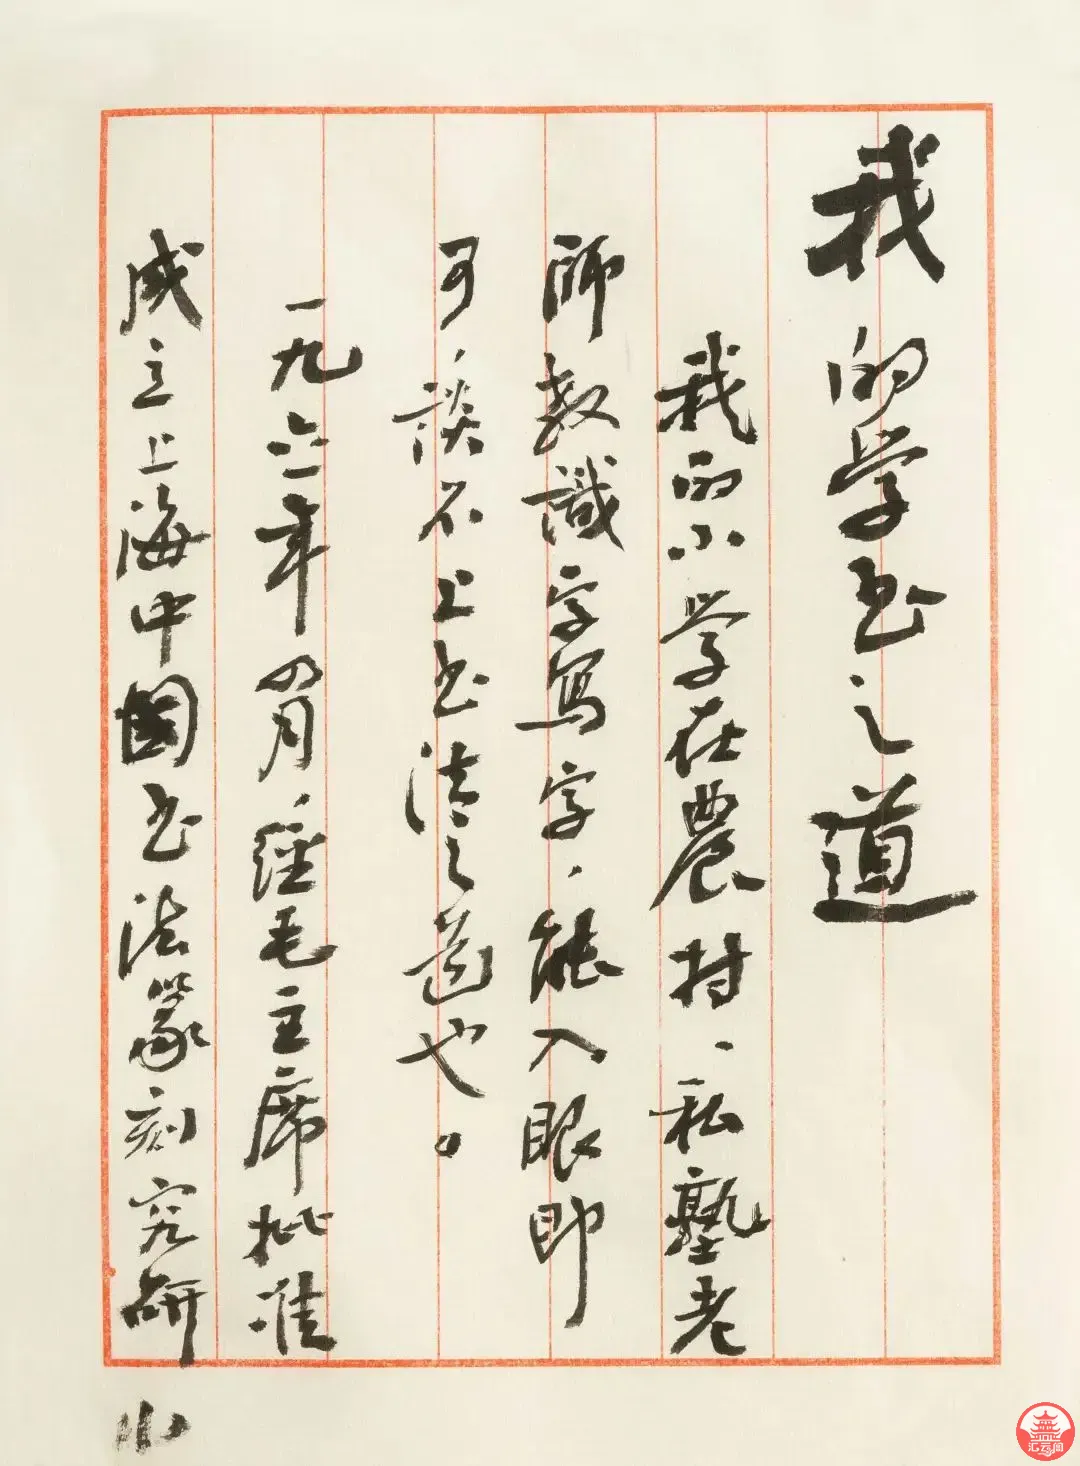 我的学书之道
我的小学在農村、私塾老
師教識字写字、能入眼即
可、談不上书法之道也。
一九六一年四月、經毛主席批准
成立上海中國书法篆刻究研
小
汇云阁